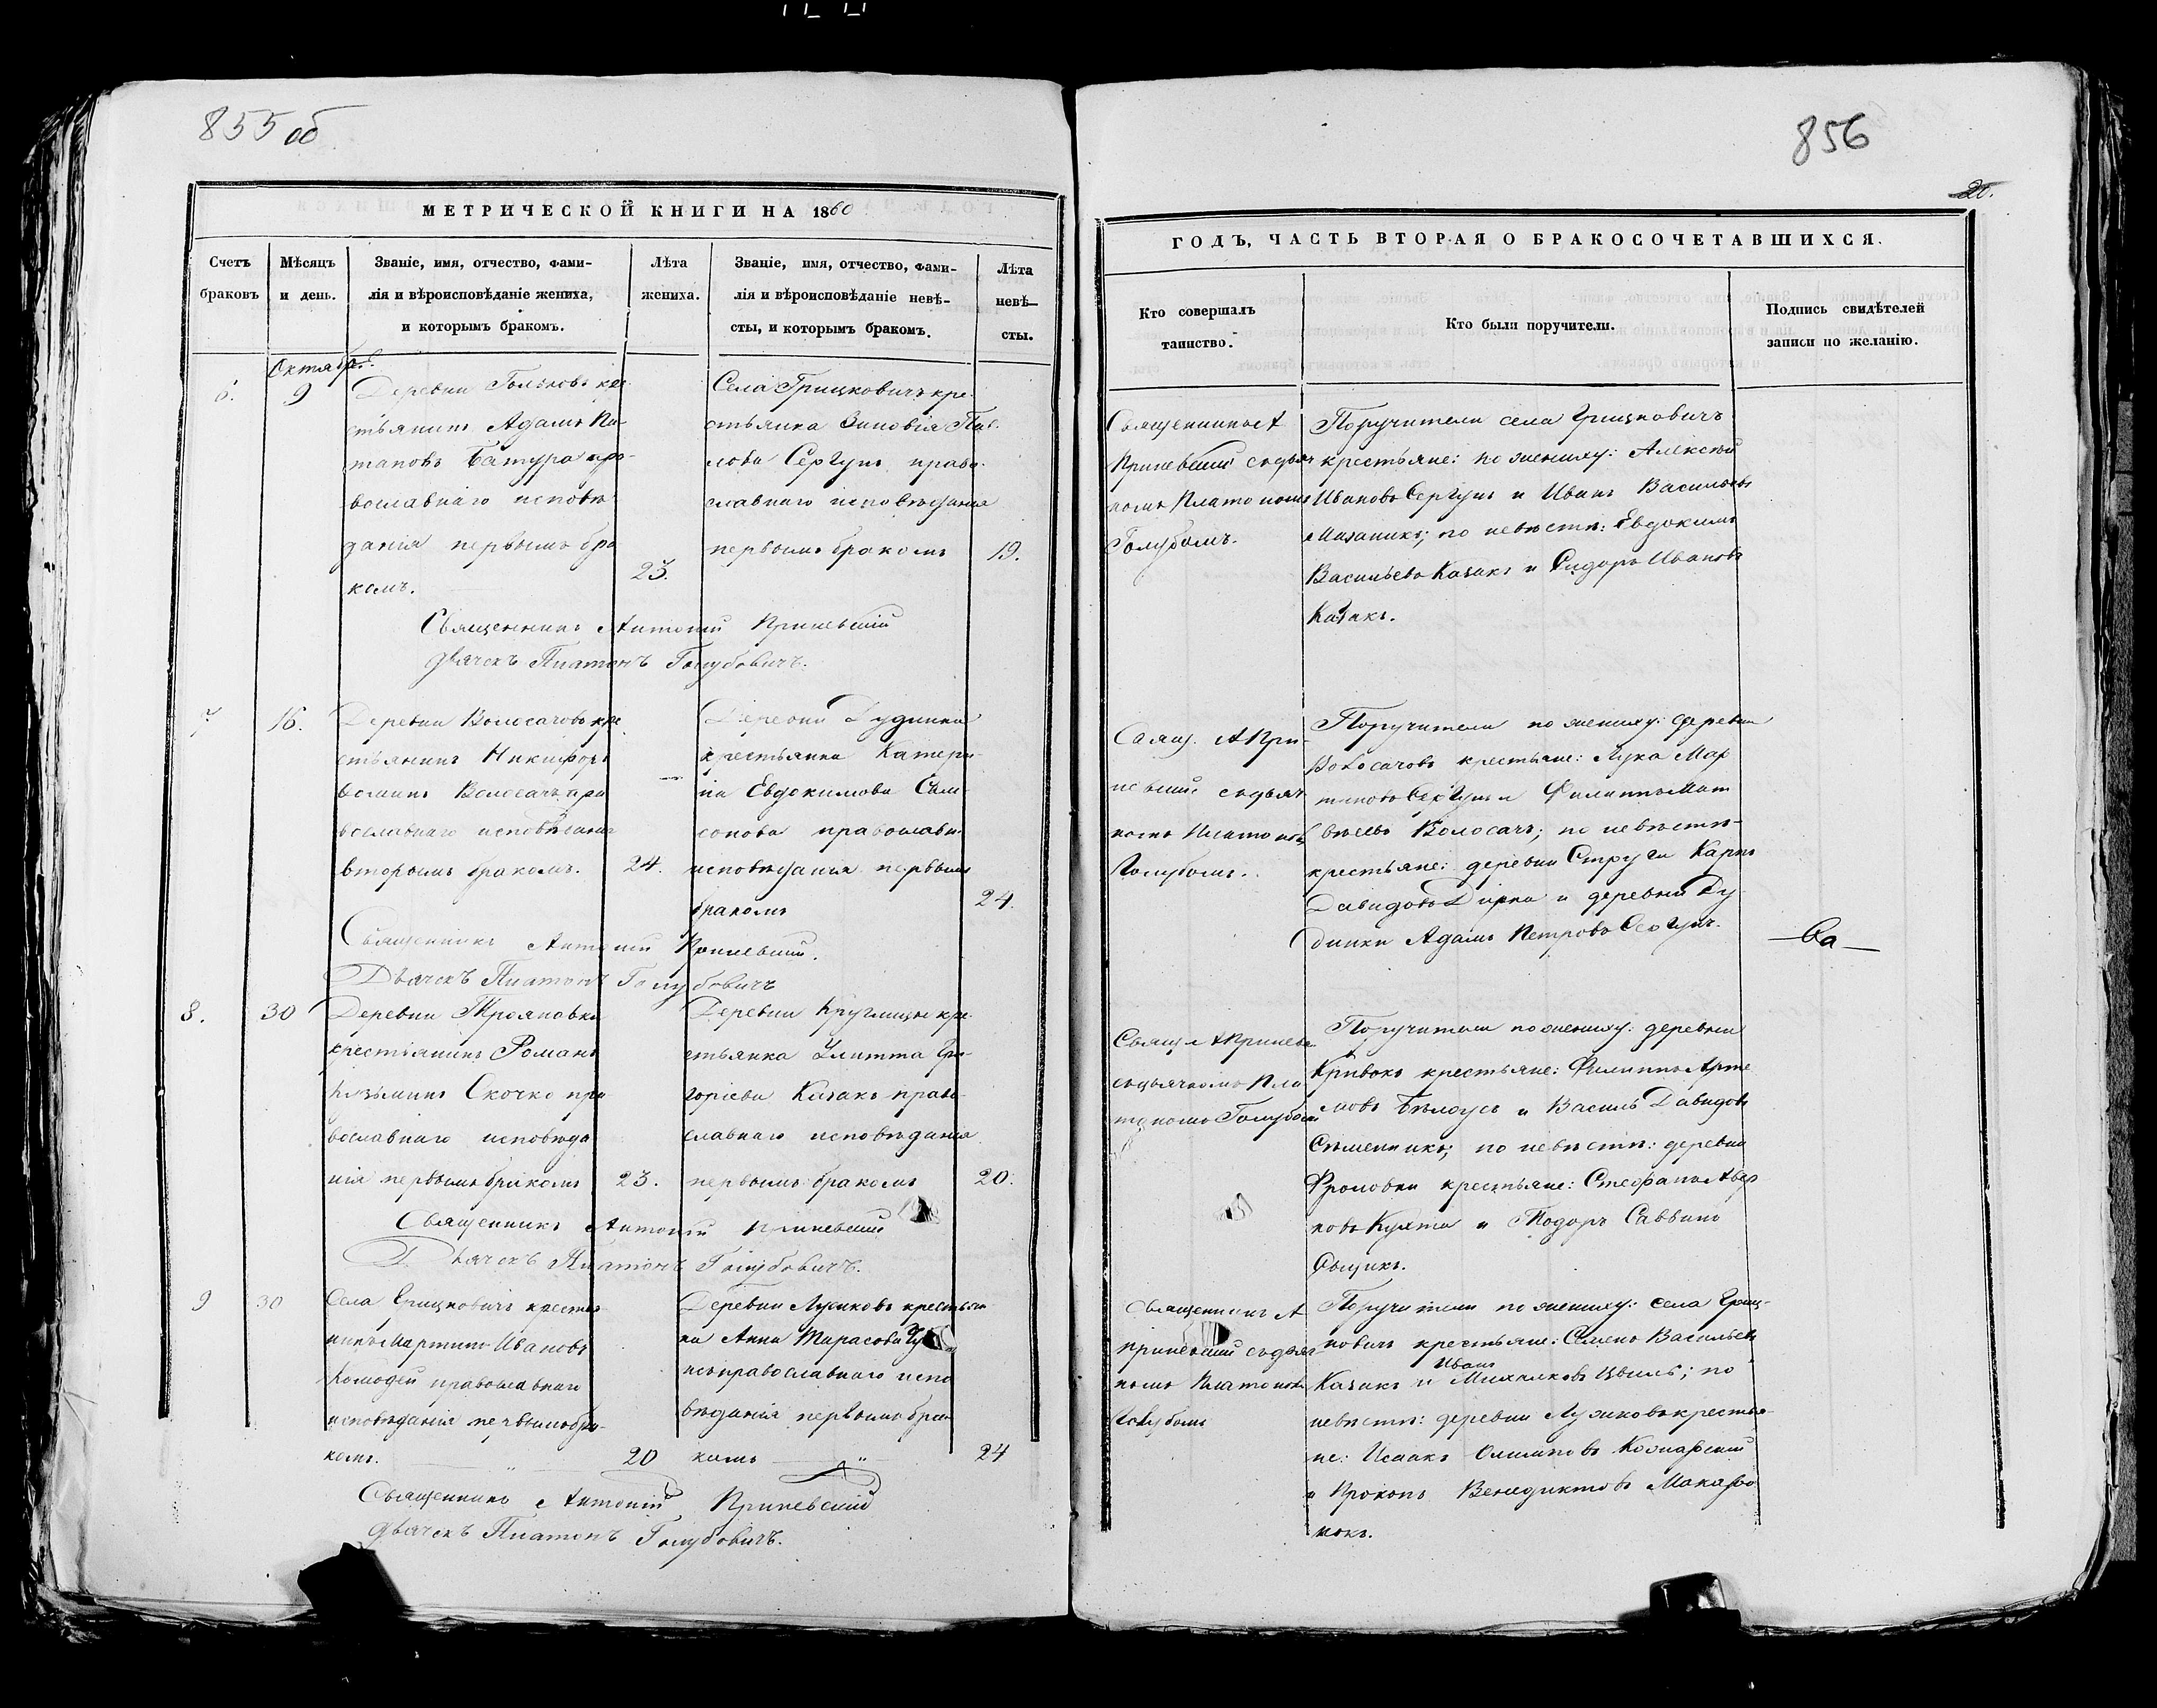 855 об
МЕТРИЧЕСКОЙ КНИГИ НА 1860
Счетъ браковъ
Мѣсяцъ и день.
Званіе, имя, отчество, фами-
лія и вѣроисповѣданіе жениха,
и которымъ бракомъ.
Лѣта жениха.
Званіе, имя, отчество, фами-
лія и вѣроисповѣданіе невѣ-
сты, и которымъ бракомъ.
Лѣта невѣ-
сты.
Октября
6.
9
Деревни кре
стьянинъ Адамъ По-
таповъ Батура пра-
вославнаго исповѣ-
данія первымъ бра
комъ.
23.
Села Грицковичъ кре-
стьянка Зиновія Пав-
лова Сергунъ право-
славнаго исповѣданія
первымъ бракомъ
19.
Священникъ Антоній Криневскій
Дьячекъ Платонъ Голубовичъ.
7
16.
Деревни Волосачовъ кре
стьянинъ Никифоръ
Волосачъ пра
вославнаго исповѣданія
вторымъ бракомъ.
24.
Деревни Дудинки
крестьянка Катери-
на Евдокимова Сам-
сонова православн.
исповѣданія первымъ
бракомъ
24.
Священникъ Антоній Криневскій.
Дьячекъ Платонъ Голубовичъ
8.
30
Деревни Трояновки
крестьянинъ Романъ
Кузьминъ Скочко пра
вославнаго исповѣда
нія первымъ бракомъ
23.
Деревни Круглицы кре-
стьянка Улитта Гри-
горіева Казакъ право-
славнаго исповѣданія
первымъ бракомъ
20.
Священникъ Антоній Криневскій
Дьячекъ Платонъ Голубовичъ.
9
30
Села Грицковичъ крестья
нинъ Мартинъ Ивановъ
православнаго
исповѣданія первымъ бра-
комъ.
20
Деревни Лусиковъ крестьян
ка Анна Тарасова
православнаго испо
вѣданія первымъ бра
комъ
24
Священникъ Антоній Криневскій
Дьячекъ Платонъ Голубовичъ.
856
20.
ГОДЪ, ЧАСТЬ ВТОРАЯ О БРАКОСОЧЕТАВШИХСЯ.
Кто совершалъ
таинство.
Кто были поручители.
Подпись свидѣтелей
записи по желанію.
Священникъ А
Криневскій съ дьяч
комъ Платономъ
Голубомъ.
Поручители села Грицковичъ
крестьяне: по жениху: Алексѣй
Ивановъ Сергунъ и Иванъ Васильевъ
по невѣстѣ: Евдокимъ
Васильевъ Казакъ и Сидоръ Ивановъ
Казакъ.
Свящ. А Кри-
невскій съ дьяч
комъ Платоном
Голубомъ.
Поручители по жениху: деревни
Волосачовъ крестьяне: Лука Мар
тиновъ Сергунъ и Филиппъ Мат
вѣевъ Волосачъ; по невѣстѣ-
крестьяне: деревни Струги Карпъ
Давидовъ и деревни Ду
динки Адамъ Петровъ Сергунъ.
Свящ. А Криневс
съ дьячкомъ Пла
тономъ Голубом
Поручители по жениху: деревни
Кривокъ крестьяне: Филиппъ Арте
мовъ Бѣлоусъ и Василь Давидовъ
по невѣстѣ: деревни
Фроловки крестьяне: Стефанъ Авер
ковъ Кухта и Тодоръ Саввинъ
Сыщикъ.
Священникъ А
Криневскій съ дьяч-
комъ Платоном
Голубомъ
Поручители по жениху: села Гриц-
ковичъ крестьяне: Семенъ Васильевъ
Иванъ
Казакъ и Михалковъ Цвиль; по
невѣстѣ: деревни Лузиковъ крестья-
не: Исаакъ
и Прокопъ Венедиктовъ Макаро
нокъ.